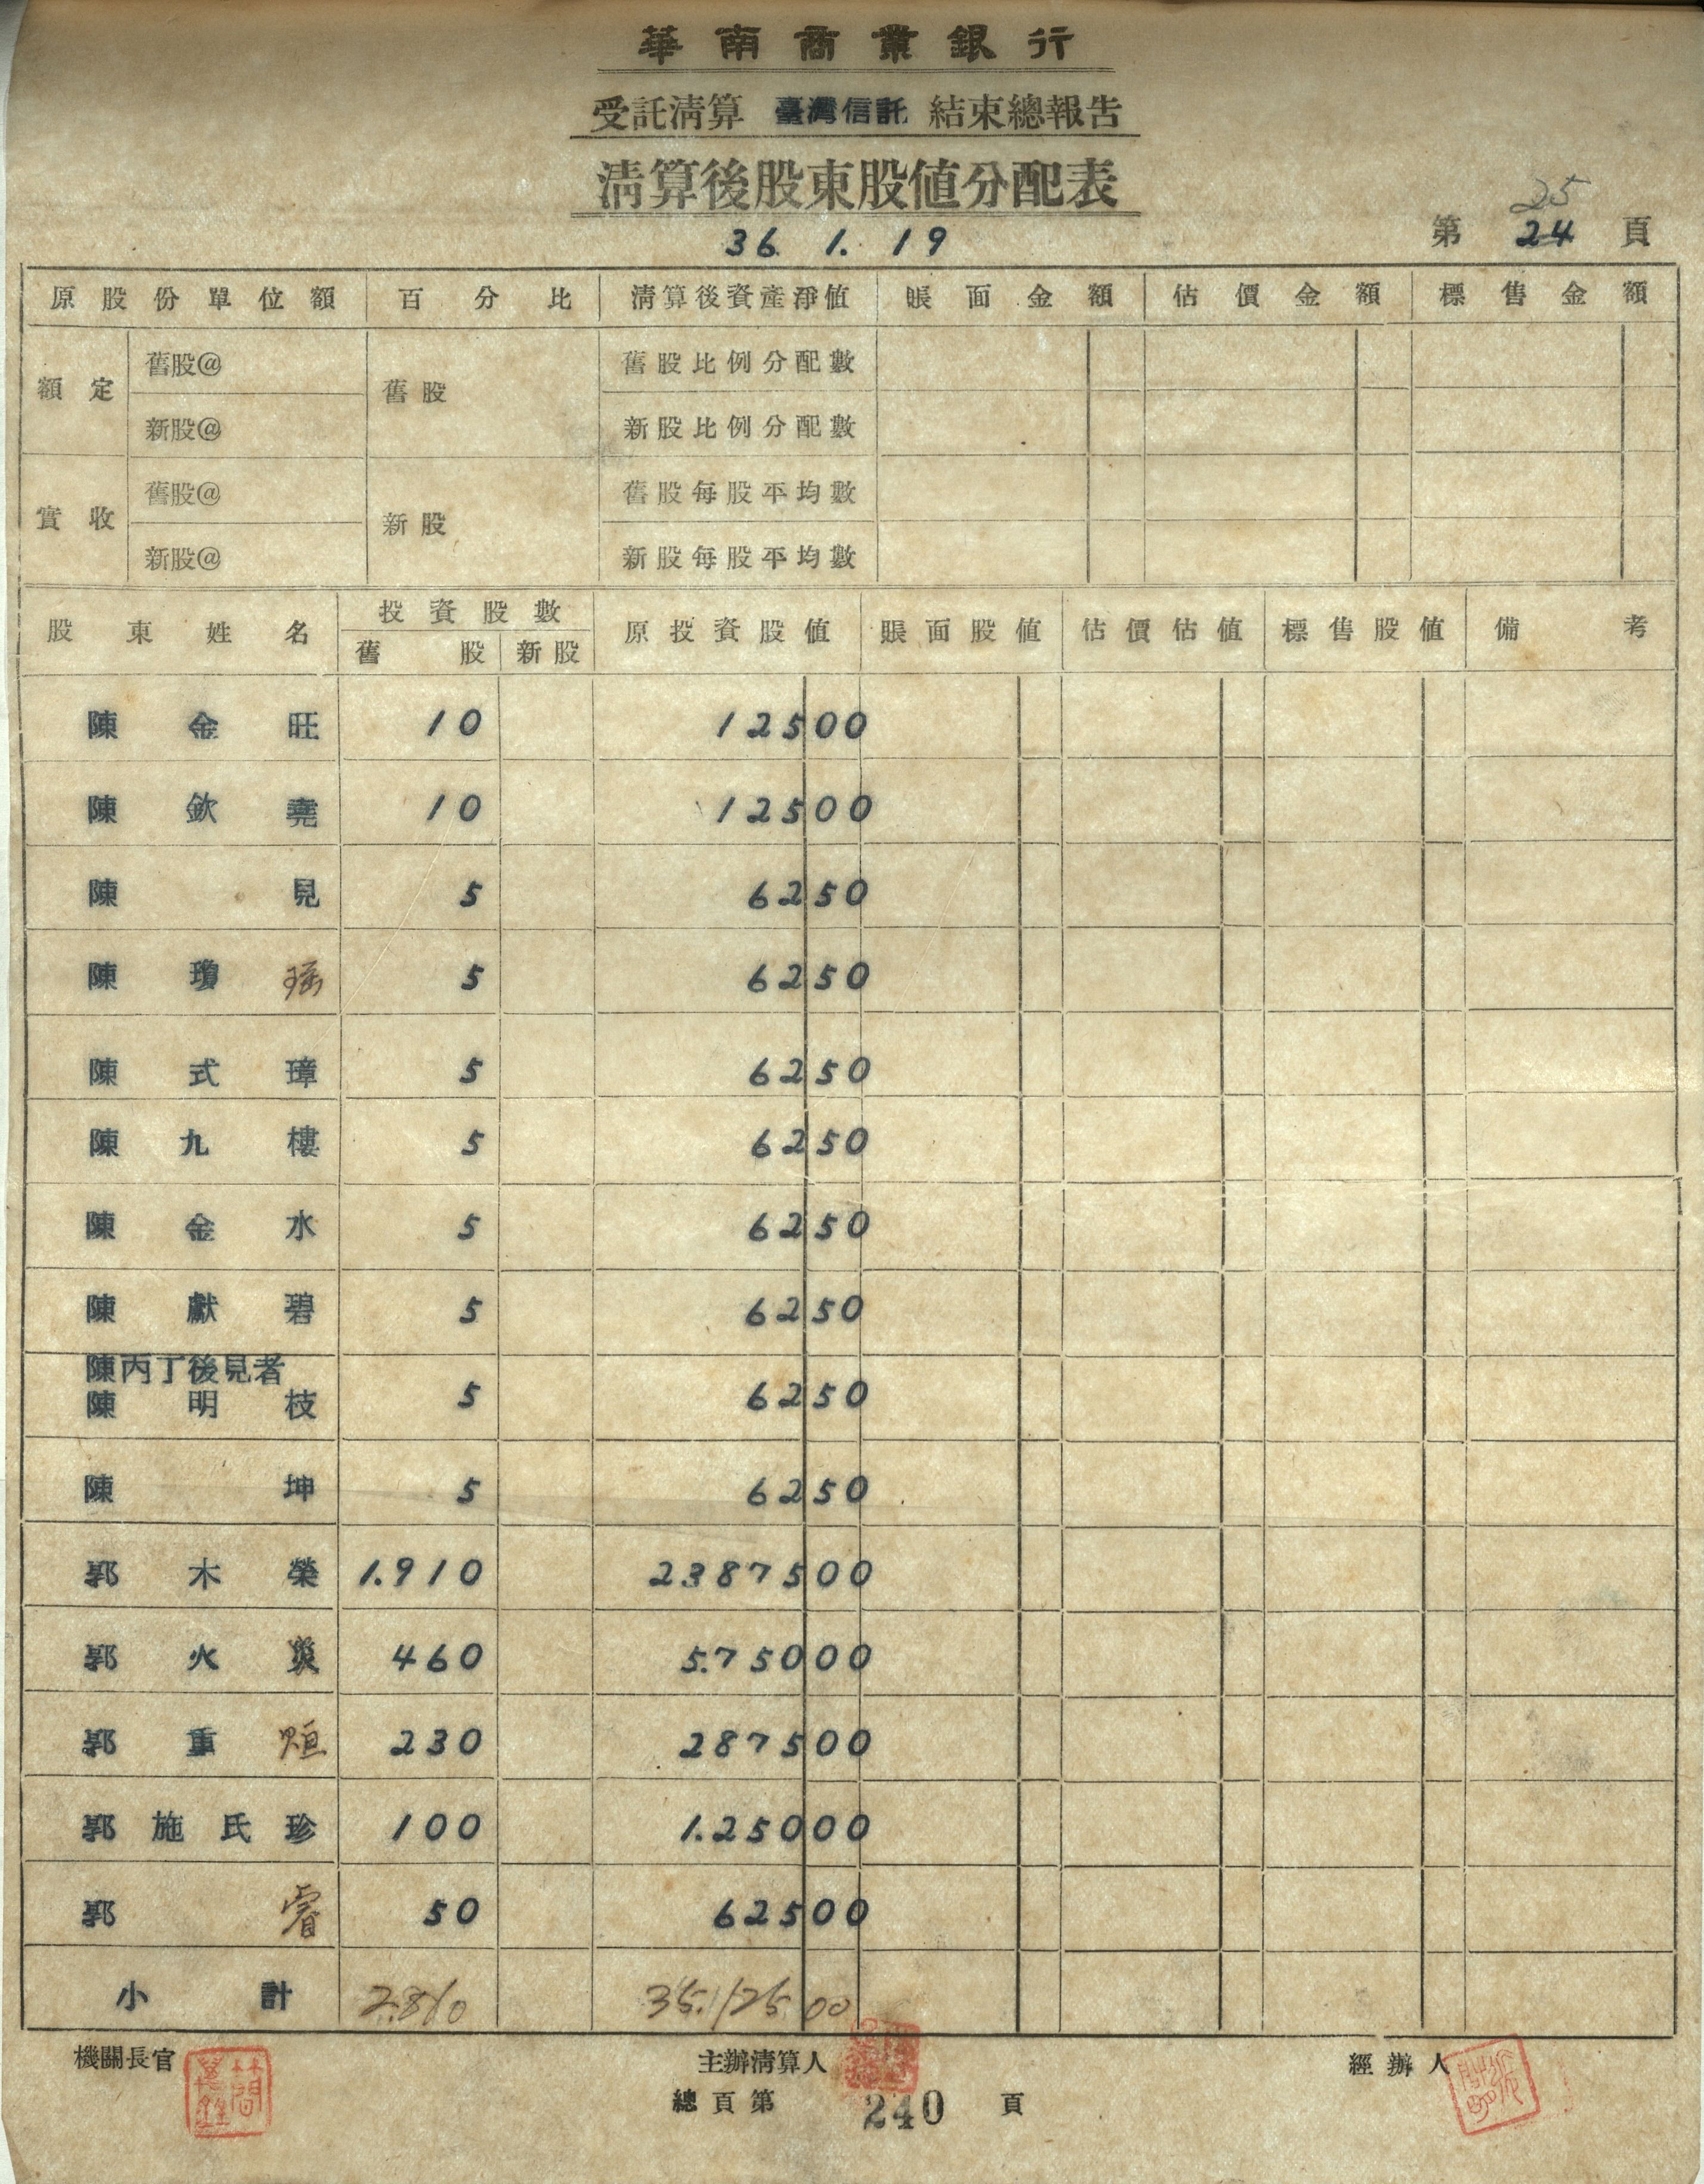 華南商業銀行
受託淸算 臺灣信託 結束總報告
淸算後股東股値分配表
25
36. 1. 19
第 24 頁
原股份單位額 百分比 淸算後資產淨値 賬面金額 估價金額 標售金額
額定 舊股@ 舊股 舊股比例分配數
新股@ 新股比例分配數
實收 舊股@ 新股 舊股每股平均數
新股@ 新股每股平均數
股東姓名 投資股數 原投資股値 賬面股値 估價估値 標售股値 備考
舊股 新股
陳金旺 10 125 00
陳欽堯 10 125 00
陳見 5 62 50
陳瓊瑤 5 62 50
陳式璋 5 62 50
陳九樓 5 62 50
陳金水 5 62 50
陳獻碧 5 62 50
陳丙丁後見者
陳明枝 5 62 50
陳坤 5 62 50
郭木榮 1.910 23875 00
郭火炎 460 5.750 00
郭重烜 230 2875 00
郭施氏珍 100 1.250 00
郭睿 50 625 00
小計 2.810 35.125 00
機關長官 主辦淸算人 經辦人
總頁第 240 頁